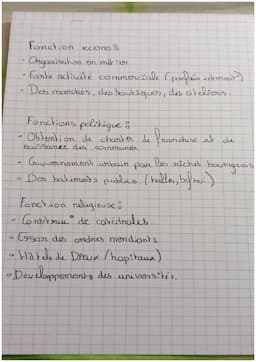 Fonction econo :
- Organisation en métier
- Forte activité commerciale (parfois internat°)
- Des marchés, des boutiques, des ateliers.
Fonctions politique :
- Obtention de chartes de franchise et de
naissance des communes
- Gouvernement urbain par les riches bourgeois
- Des batiments publics. (halles, befroi.)
Fonction religieuse :
- Construc° de catédrales
- Essor des ordres mendiants
- Hotels de Dieux (hopitaux)
- Developpements des universités.